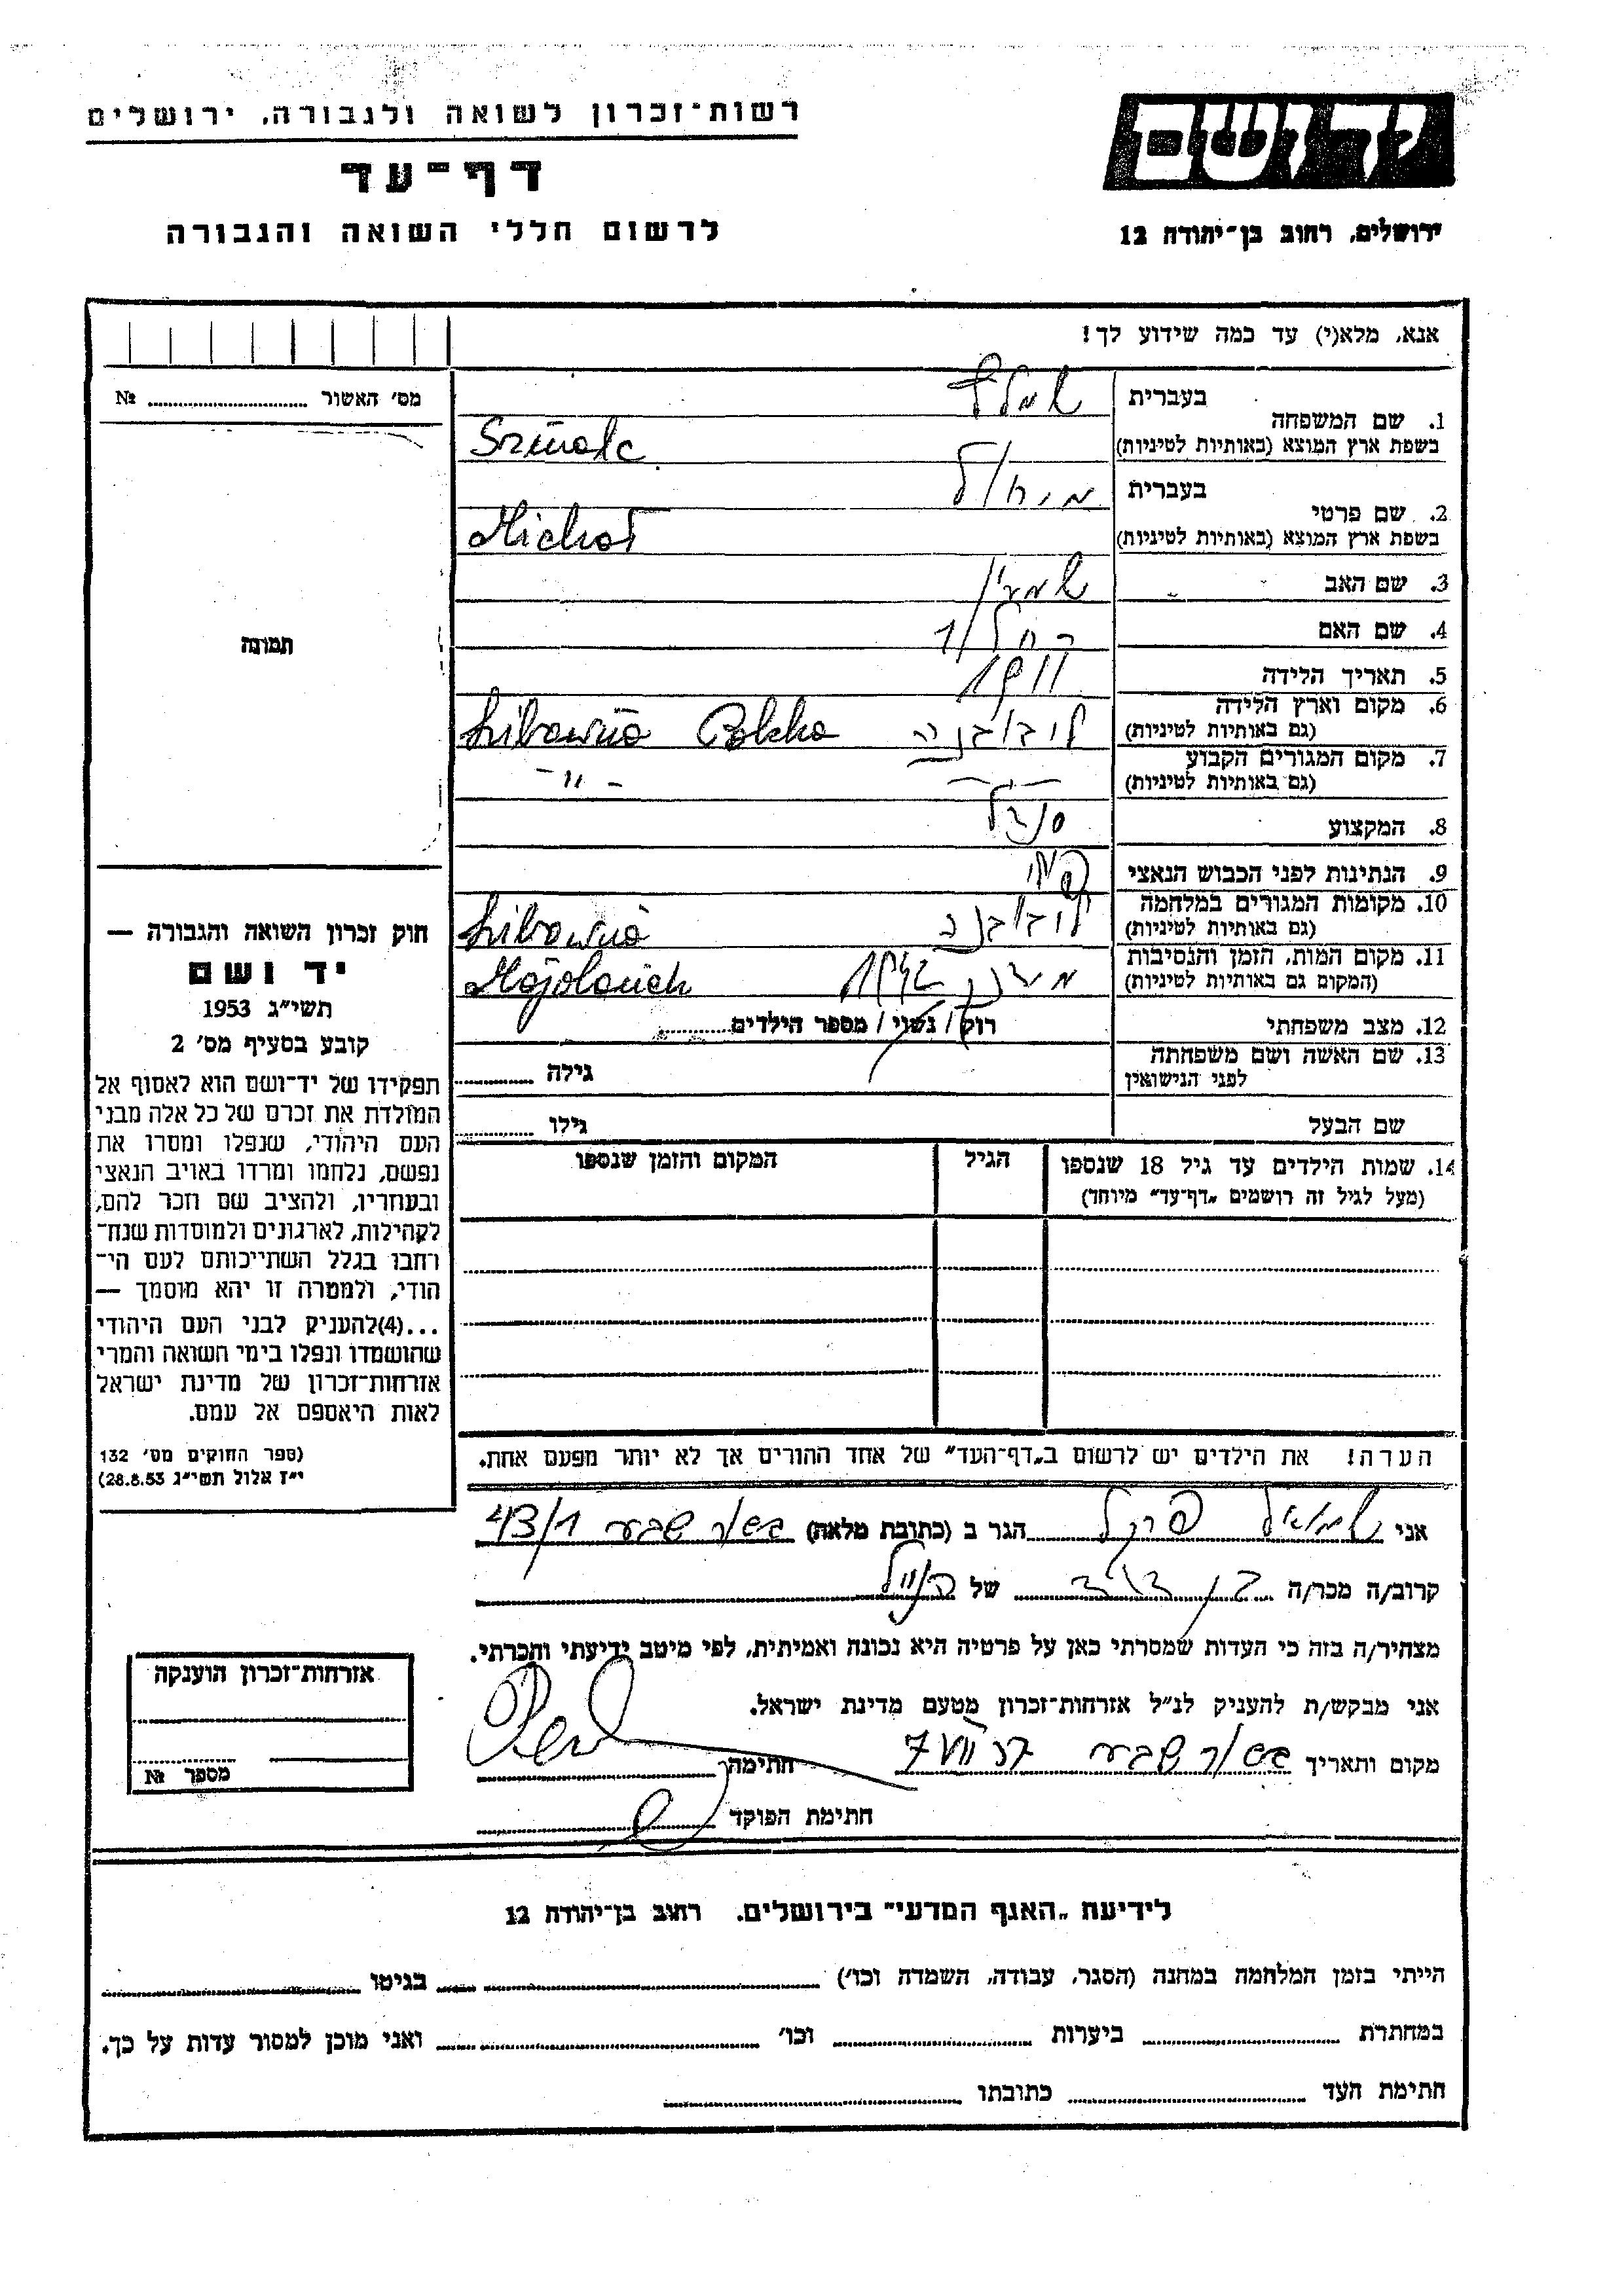 רשות-זכרון לשואה ולגבורה, ירושלים
יד ושם
דף-עד
לרשום חללי השואה והגבורה
ירושלים, רחוב בן-יהודה 12
אנא, מלא(י) עד כמה שידוע לך!
מס׳ האשור № 
תמונה
1. שם המשפחה בעברית
בשפת ארץ המוצא (באותיות לטיניות)
2. שם פרטי בעברית מיחאל
בשפת ארץ המוצא (באותיות לטיניות) Michał
3. שם האב שמעון
4. שם האם רחל
5. תאריך הלידה 1911
6. מקום וארץ הלידה
(גם באותיות לטיניות) Polska
7. מקום המגורים הקבוע
(גם באותיות לטיניות) - " -
8. המקצוע סנדלר
9. הנתינות לפני הכבוש הנאצי
10. מקומות המגורים במלחמה
(גם באותיות לטיניות)
11. מקום המות, הזמן והנסיבות
(המקום גם באותיות לטיניות) 1942
12. מצב משפחתי רוק / נשוי / מספר הילדים
13. שם האשה ושם משפחתה
לפני הנישואין גילה
שם הבעל גילו
14. שמות הילדים עד גיל 18 שנספו הגיל המקום והזמן שנספו
(מעל לגיל זה רושמים „דף-עד״ מיוחד)
חוק זכרון השואה והגבורה —
יד ושם
תשי״ג 1953
קובע בסעיף מס׳ 2
תפקידו של יד-ושם הוא לאסוף אל
המולדת את זכרם של כל אלה מבני
העם היהודי, שנפלו ומסרו את
נפשם, נלחמו ומרדו באויב הנאצי
ובעוזריו, ולהציב שם וזכר להם,
לקהילות, לארגונים ולמוסדות שנח-
רחבו בגלל השתייכותם לעם הי-
הודי, ולמטרה זו יהא מוסמך —
...(4)להעניק לבני העם היהודי
שהושמדו ונפלו בימי השואה והמרי
אזרחות-זכרון של מדינת ישראל
לאות היאספם אל עמם.
(ספר החוקים מס׳ 132
י״ז אלול תשי״ג 28.8.53)
הערה! את הילדים יש לרשום ב„דף-העד״ של אחד ההורים אך לא יותר מפעם אחת.
אני שמואל פרקל הגר ב (כתובת מלאה) באר שבע 43/1
קרוב/ה מכר/ה בן דוד של הנ״ל
מצהיר/ה בזה כי העדות שמסרתי כאן על פרטיה היא נכונה ואמיתית, לפי מיטב ידיעתי והכרתי.
אני מבקש/ת להעניק לנ״ל אזרחות-זכרון מטעם מדינת ישראל.
מקום ותאריך באר שבע חתימה
חתימת הפוקד
אזרחות-זכרון הוענקה
מספר №
לידיעת „האגף המדעי״ בירושלים. רחוב בן-יהודה 12
הייתי בזמן המלחמה במחנה (הסגר, עבודה, השמדה וכו׳) בגיטו
במחתרת ביערות וכו׳ ואני מוכן למסור עדות על כך.
חתימת העד כתובתו